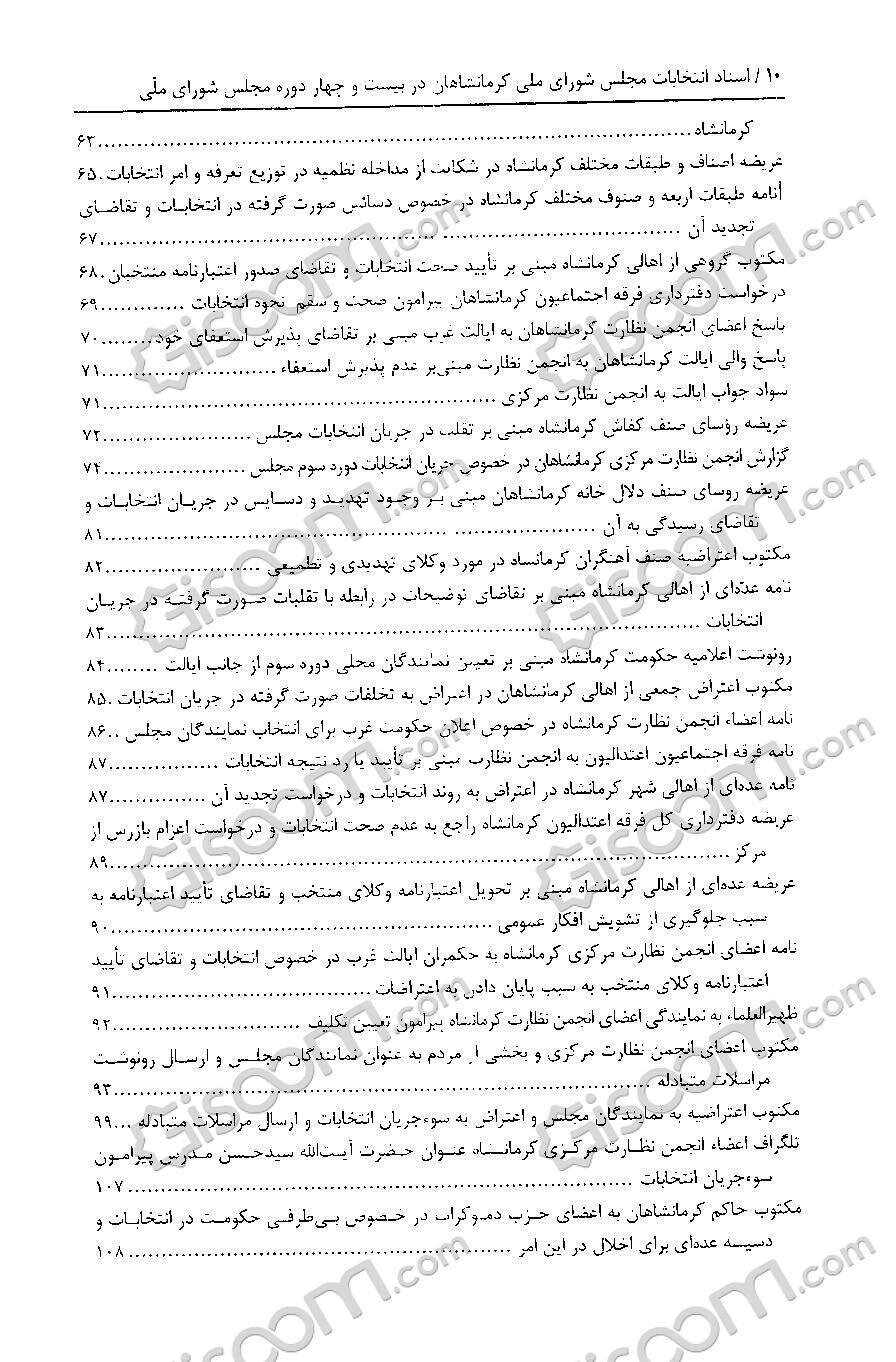 ۱۰ / اسناد انتخابات مجلس شورای ملی کرمانشاهان در بیست و چهار دوره مجلس شورای ملّی
کرمانشاه ........ ۶۳
عریضه اصناف و طبقات مختلف کرمانشاه در شکایت از مداخله نظمیه در توزیع تعرفه و امر انتخابات . ۶۵
نامه طبقات اربعه و صنوف مختلف کرمانشاه در خصوص دسائس صورت گرفته در انتخابات و تقاضای
تجدید آن ........ ۶۷
مکتوب گروهی از اهالی کرمانشاه مبنی بر تأیید صحت انتخابات و تقاضای صدور اعتبارنامه منتخبان . ۶۸
درخواست دفترداری فرقه اجتماعیون کرمانشاهان پیرامون صحت و سقم نحوه انتخابات ........ ۶۹
پاسخ اعضای انجمن نظارت کرمانشاهان به ایالت غرب مبنی بر تقاضای پذیرش استعفای خود ........ ۷۰
پاسخ والی ایالت کرمانشاهان به انجمن نظارت مبنی‌بر عدم پذیرش استعفاء ........ ۷۱
سواد جواب ایالت به انجمن نظارت مرکزی ........ ۷۱
عریضه رؤسای صنف کفاش کرمانشاه مبنی بر تقلب در جریان انتخابات مجلس ........ ۷۲
گزارش انجمن نظارت مرکزی کرمانشاهان در خصوص جریان انتخابات دوره سوم مجلس ........ ۷۴
عریضه روسای صنف دلال خانه کرمانشاهان مبنی بر وجود تهدید و دسایس در جریان انتخابات و
تقاضای رسیدگی به آن ........ ۸۱
مکتوب اعتراضیه صنف آهنگران کرمانشاه در مورد وکلای تهدیدی و تطمیعی ........ ۸۲
نامه عدّه‌ای از اهالی کرمانشاه مبنی بر تقاضای توضیحات در رابطه با تقلبات صورت گرفته در جریان
انتخابات ........ ۸۳
رونوشت اعلامیه حکومت کرمانشاه مبنی بر تعیین نمایندگان محلی دوره سوم از جانب ایالت ........ ۸۴
مکتوب اعتراض جمعی از اهالی کرمانشاهان در اعتراض به تخلفات صورت گرفته در جریان انتخابات . ۸۵
نامه اعضاء انجمن نظارت کرمانشاه در خصوص اعلان حکومت غرب برای انتخاب نمایندگان مجلس .. ۸۶
نامه فرقه اجتماعیون اعتدالیون به انجمن نظارت مبنی بر تأیید یا رد نتیجه انتخابات ........ ۸۷
نامه عده‌ای از اهالی شهر کرمانشاه در اعتراض به روند انتخابات و درخواست تجدید آن ........ ۸۷
عریضه دفترداری کل فرقه اعتدالیون کرمانشاه راجع به عدم صحت انتخابات و درخواست اعزام بازرس از
مرکز ........ ۸۹
عریضه عده‌ای از اهالی کرمانشاه مبنی بر تحویل اعتبارنامه وکلای منتخب و تقاضای تأیید اعتبارنامه به
سبب جلوگیری از تشویش افکار عمومی ........ ۹۰
نامه اعضای انجمن نظارت مرکزی کرمانشاه به حکمران ایالت غرب در خصوص انتخابات و تقاضای تأیید
اعتبارنامه وکلای منتخب به سبب پایان دادن به اعتراضات ........ ۹۱
ظهیرالعلماء به نمایندگی اعضای انجمن نظارت کرمانشاه پیرامون تعیین تکلیف ........ ۹۲
مکتوب اعضای انجمن نظارت مرکزی و بخشی از مردم به عنوان نمایندگان مجلس و ارسال رونوشت
مراسلات متبادله ........ ۹۳
مکتوب اعتراضیه به نمایندگان مجلس و اعتراض به سوءجریان انتخابات و ارسال مراسلات متبادله ... ۹۹
تلگراف اعضاء انجمن نظارت مرکزی کرمانشاه عنوان حضرت آیت‌الله سیدحسن مدرس پیرامون
سوءجریان انتخابات ........ ۱۰۷
مکتوب حاکم کرمانشاهان به اعضای حزب دموکرات در خصوص بی‌طرفی حکومت در انتخابات و
دسیسه عده‌ای برای اخلال در این امر ........ ۱۰۸
Giscoom.com